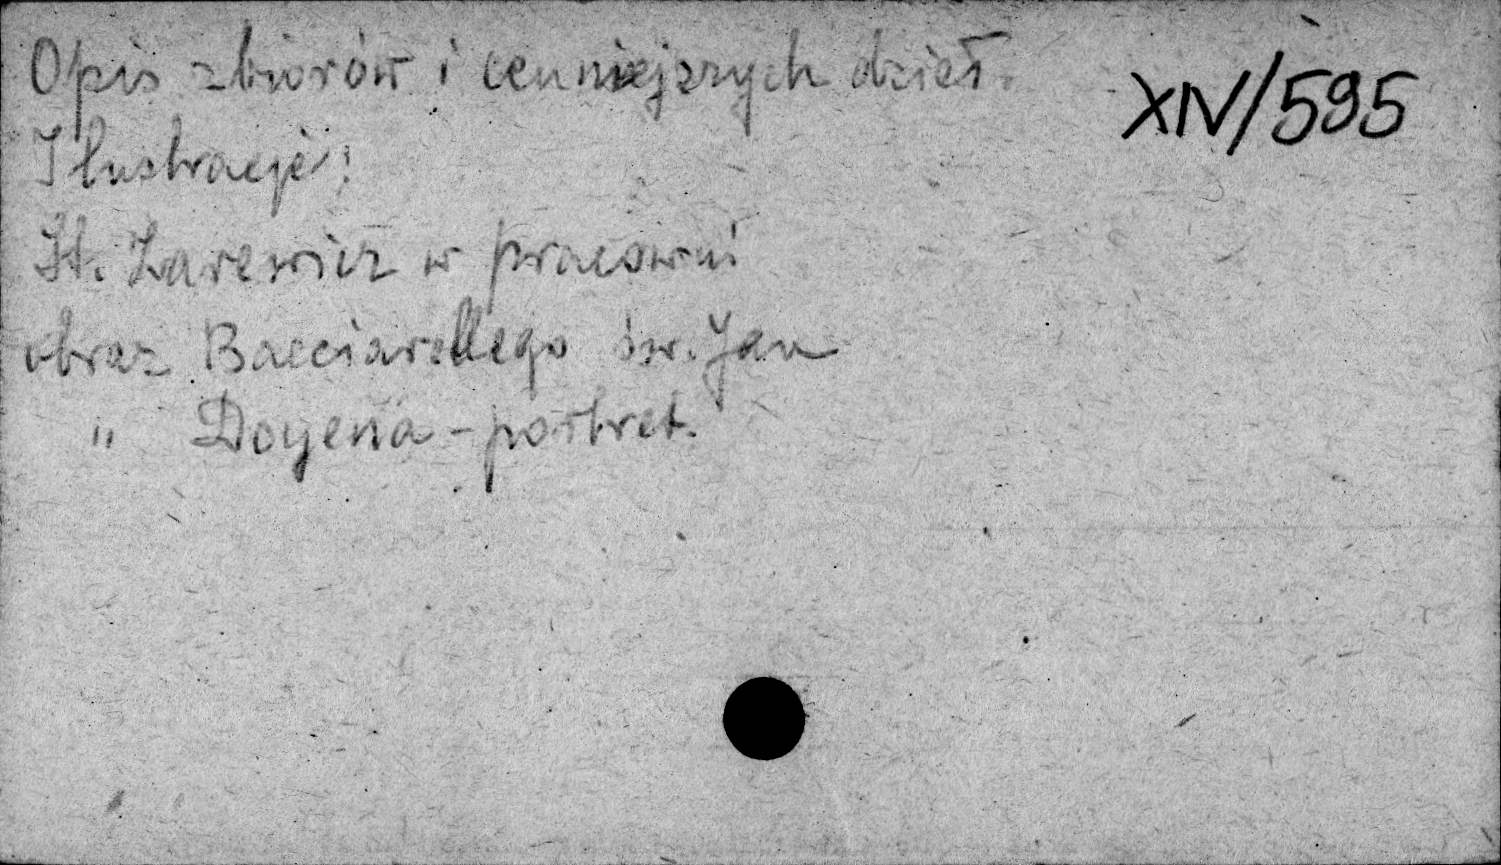 Opis zbiorów i cenniejszych dzieł.
XIV/595
Ilustracje:
St. Żarewicz w pracowni
obraz Bacciarellego św. Jan
" Doyena - portret.